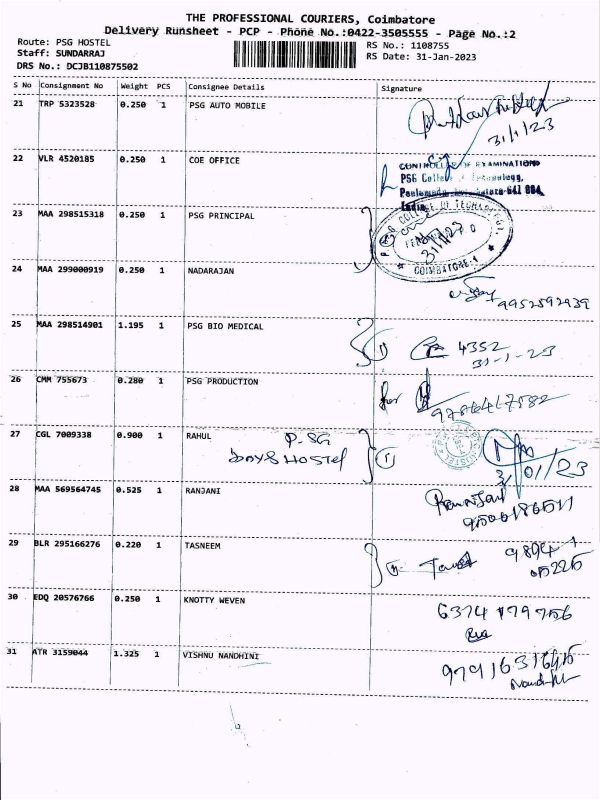 THE PROFESSIONAL COURIERS, Coimbatore
Delivery Runsheet - PCP - Phone No.:0422-3505555 - Page No.:2
Route: PSG HOSTEL
RS No.: 1108755
Staff: SUNDARRAJ
RS Date: 31-Jan-2023
DRS No.: DCJB110875502
S No Consignment No Weight PCS Consignee Details Signature
21 TRP 5323528 0.250 1 PSG AUTO MOBILE
31/1/23
22 VLR 4520185 0.250 1 COE OFFICE
CONTROLLER OF EXAMINATIONS
PSG College of Technology,
Peelamedu, Coimbatore-641 004,
India
23 MAA 298515318 0.250 1 PSG PRINCIPAL
PSG COLLEGE OF TECHNOLOGY
COIMBATORE-4
24 MAA 299000919 0.250 1 NADARAJAN
9952592939
25 MAA 298514901 1.195 1 PSG BIO MEDICAL
4352
31-1-23
26 CMM 755673 0.280 1 PSG PRODUCTION
for
27 CGL 7009338 0.900 1 RAHUL P.SG
BOYS HOSTEL
31/01/23
28 MAA 569564745 0.525 1 RANJANI
29 BLR 295166276 0.220 1 TASNEEM
30 EDQ 20576766 0.250 1 KNOTTY WEVEN
6374179756
31 ATR 3159044 1.325 1 VISHNU NANDHINI